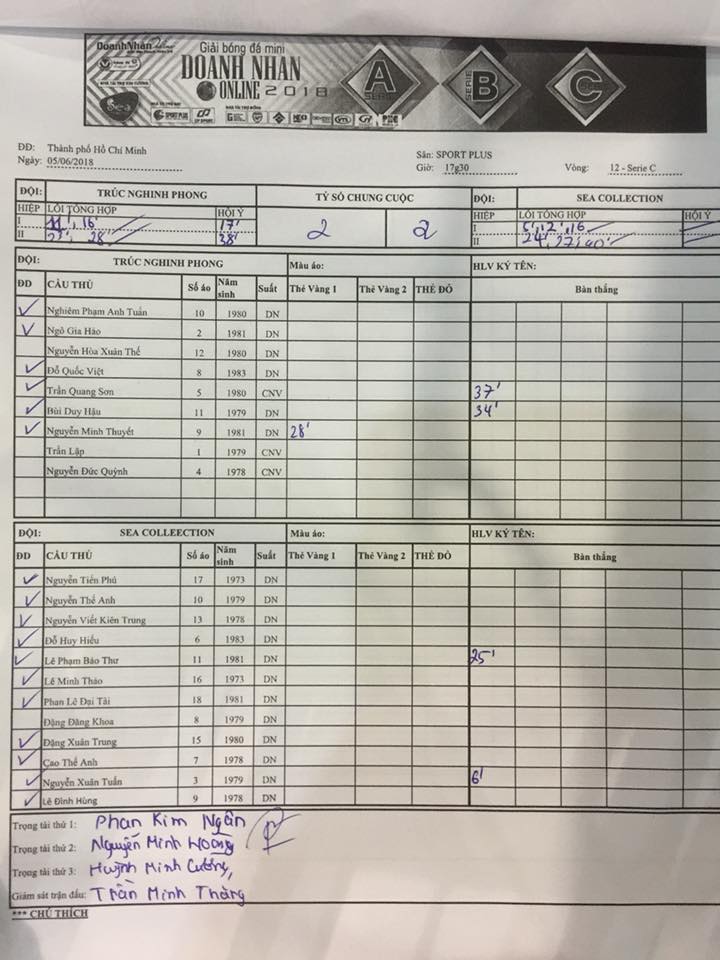 DoanhNhan
NHÀ TÀI TRỢ KIM CƯƠNG
Sea
Giải bóng đá mini
DOANH NHÂN
ONLINE 2018
SPORT PLUS
A
SERIE
B
SERIE
C
ĐĐ: Thành phố Hồ Chí Minh
Ngày: 05/06/2018
Sân: SPORT PLUS
Giờ: 17g30 Vòng: 12 - Serie C
ĐỘI: TRÚC NGHINH PHONG TỶ SỐ CHUNG CUỘC ĐỘI: SEA COLLECTION
HIỆP LỖI TỔNG HỢP HỘI Ý 2 2 HIỆP LỖI TỔNG HỢP HỘI Ý
I 16' 17' I 5', 12', 16
II 28' 38' II 24', 27', 40'
ĐỘI: TRÚC NGHINH PHONG Màu áo: HLV KÝ TÊN:
ĐD CẦU THỦ Số áo Năm sinh Suất Thẻ Vàng 1 Thẻ Vàng 2 THẺ ĐỎ Bàn thắng
Nghiêm Phạm Anh Tuấn 10 1980 DN
Ngô Gia Hào 2 1981 DN
Nguyễn Hòa Xuân Thế 12 1980 DN
Đỗ Quốc Việt 8 1983 DN
Trần Quang Sơn 5 1980 CNV 37'
Bùi Duy Hậu 11 1979 DN 34'
Nguyễn Minh Thuyết 9 1981 DN 28'
Trần Lập 1 1979 CNV
Nguyễn Đức Quỳnh 4 1978 CNV
ĐỘI: SEA COLLEECTION Màu áo: HLV KÝ TÊN:
ĐD CẦU THỦ Số áo Năm sinh Suất Thẻ Vàng 1 Thẻ Vàng 2 THẺ ĐỎ Bàn thắng
Nguyễn Tiến Phú 17 1973 DN
Nguyễn Thế Anh 10 1979 DN
Nguyễn Viết Kiên Trung 13 1978 DN
Đỗ Huy Hiếu 6 1983 DN
Lê Phạm Bảo Thư 11 1981 DN 25'
Lê Minh Thảo 16 1973 DN
Phan Lê Đại Tài 18 1981 DN
Đặng Đăng Khoa 8 1979 DN
Đặng Xuân Trung 15 1980 DN
Cao Thế Anh 7 1978 DN
Nguyễn Xuân Tuấn 3 1979 DN 6'
Lê Đình Hùng 9 1978 DN
Trọng tài thứ 1: Phan Kim Ngân
Trọng tài thứ 2: Nguyễn Minh Hoàng
Trọng tài thứ 3: Huỳnh Minh Cường,
Giám sát trận đấu: Trần Minh Thắng
*** CHÚ THÍCH